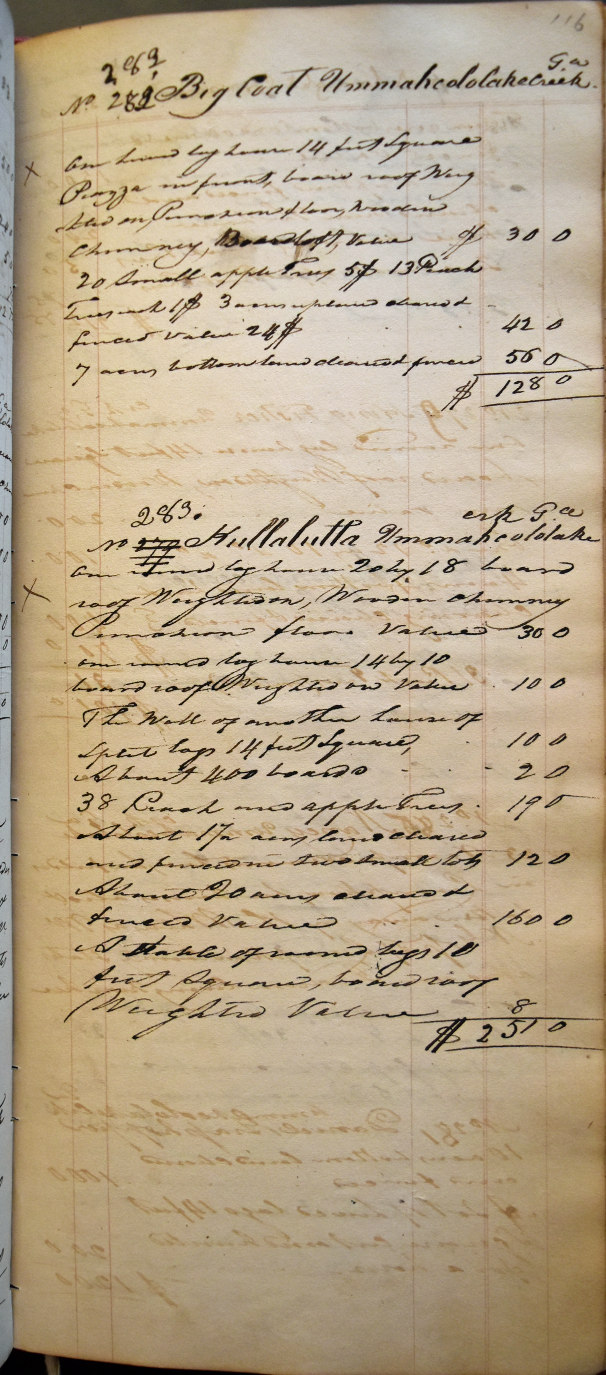 116
282
No 282 Big Coat Ummahcololake Creek Ga
X
One hewed log house 14 feet Square
Piazza in front, board roof Weig
hted on, Puncheon floor, Wooden
Chimney, Boardloft, Value $ 30 0
20 Small apple Trees 5$ 13 Peach
Trees each 1$ 3 acres upland cleared &
fenced Value 24$ 42 0
7 acres bottom land cleared & fenced 56 0
$ 128 0
283.
No Hullalutla Ummahcololake crk Ga
X
One round log house 20 by 18 board
roof Weighted on, Wooden Chimney
Puncheon floor Value 30 0
one round log house 14 by 10
board roof Weighted on Value 10 0
The Wall of another house of
Split logs 14 feet Square, 10 0
About 400 boards 2 0
38 Peach and apple Trees 19 0
About acres land cleared
and fenced in two small lots 12 0
About 20 acres cleared &
fenced Value 160 0
A Stable of round logs 10
feet Square, board roof
Weighted Value 8
$ 251 0